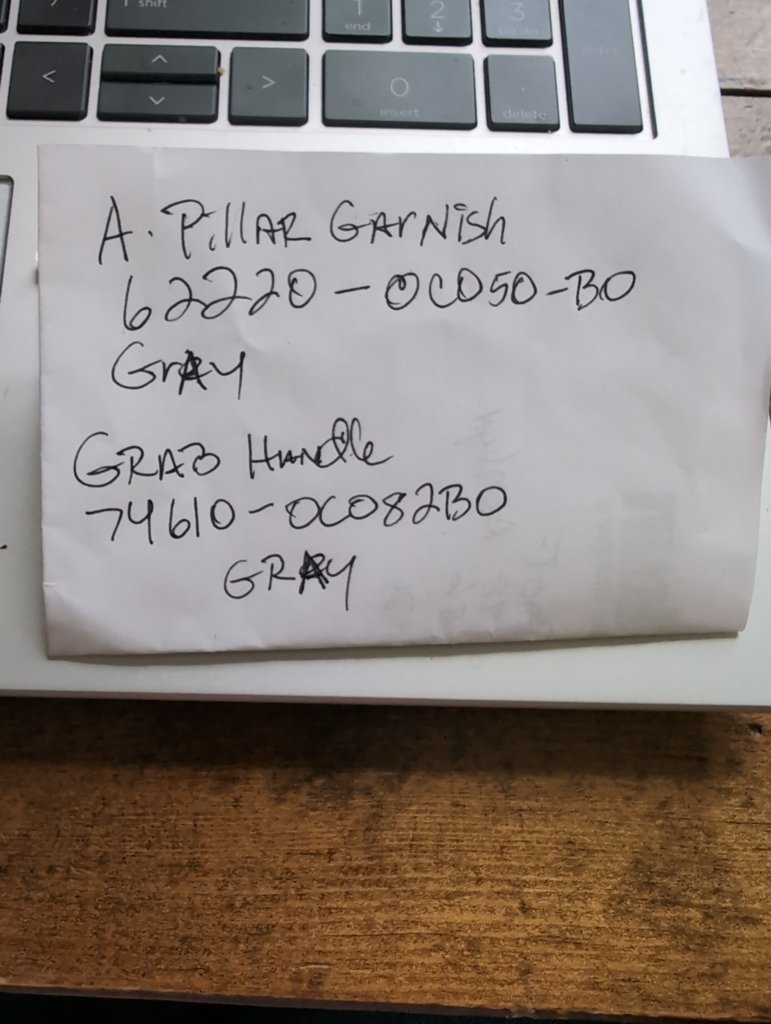 ↑ shift
1
end
2
↓
3
pg dn
enter
<
^
v
>
0
insert
.
delete
A. Pillar Garnish
62220-0C050-B0
Gray
Grab Handle
74610-0C082B0
Gray